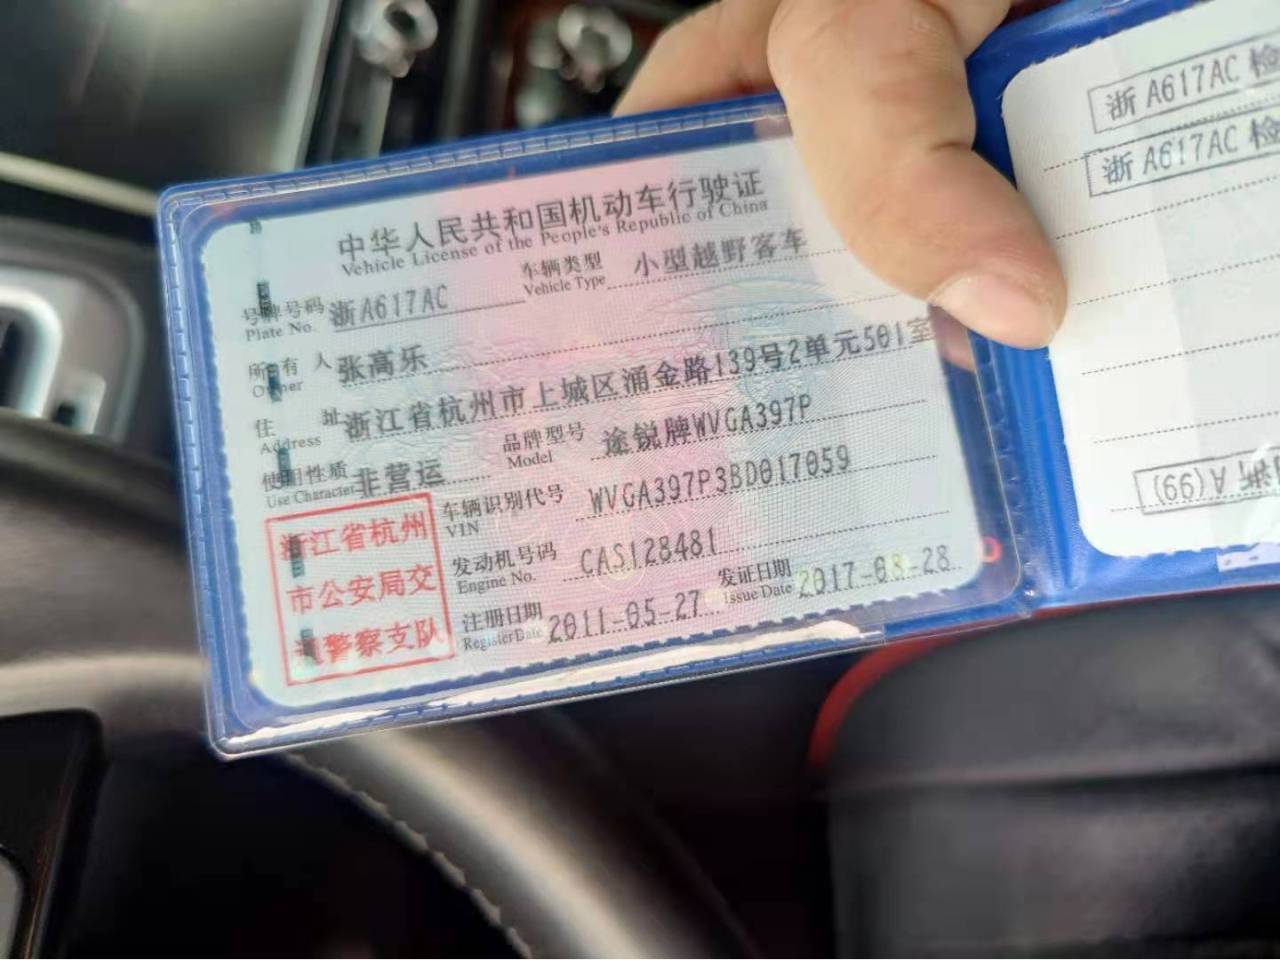 中华人民共和国机动车行驶证
Vehicle License of the People's Republic of China
号牌号码 浙A617AC 车辆类型 小型越野客车
Plate No. Vehicle Type
所有人 张高乐
Owner
住址 浙江省杭州市上城区涌金路139号2单元501室
Address
使用性质 非营运 品牌型号 途锐牌WVGA397P
Use Character Model
车辆识别代号 WVGA397P3BD017059
VIN
发动机号码 CAS128481
Engine No.
注册日期 2011-05-27 发证日期 2017-08-28
Register Date Issue Date
浙江省杭州
市公安局交
通警察支队
浙A617AC 检
浙A617AC 检
浙A (99)